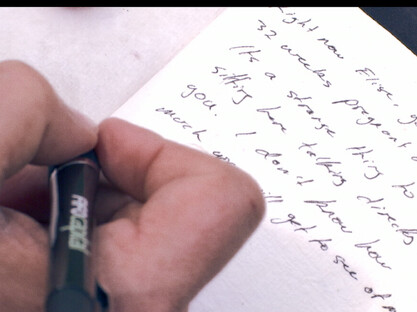 right now Elise, 
32 weeks pregnant
It's a strange thing to
sitting here talking directly
you. I don't know how
much will get to see of